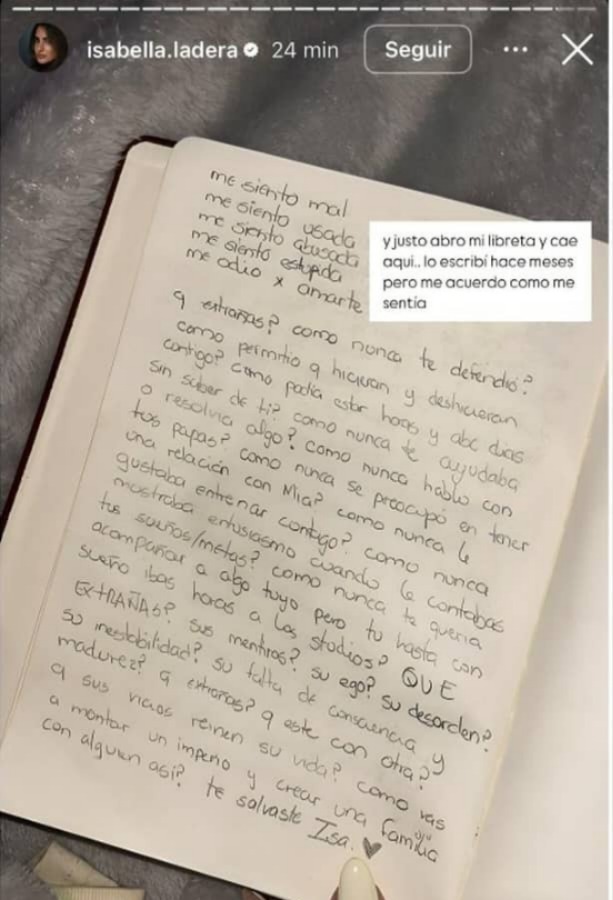 isabella.ladera 24 min Seguir
me siento mal
me siento usada
me siento abusada
me siento estupida
me odio x amarte
y justo abro mi libreta y cae
aqui.. lo escribí hace meses
pero me acuerdo como me
sentía
q extrañas? como nunca te defendió?
como permitio q hicieran y deshicieran
contigo? como podia estar horas y abc dias
sin saber de ti? como nunca te ayudaba
o resolvia algo? como nunca hablo con
tus papas? como nunca se preocupó en tener
una relación con Mia? como nunca le
gustaba entrenar contigo? como nunca
mostraba entusiasmo cuando le contabas
tus sueños/metas? como nunca te queria
acompañar a algo tuyo pero tu hasta con
sueño ibas horas a los studios? QUE
EXTRAÑAS? sus mentiras? su ego? su desorden?
su inestabilidad? su falta de consciencia y
madurez? q extrañas? q este con otra?
q sus vicios reinen su vida? como vas
a montar un imperio y crear una familia
con alguien asi? te salvaste Isa.